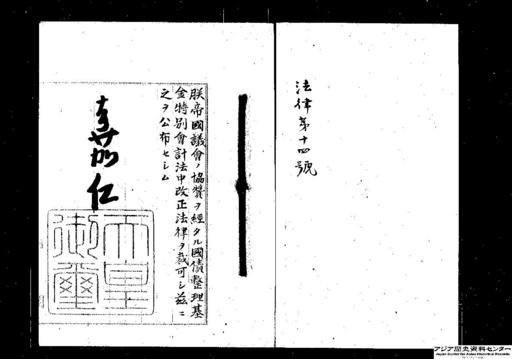 法律第十四號
朕帝國議會ノ協贊ヲ經タル國債整理基
金特別會計法中改正法律ヲ裁可シ茲ニ
之ヲ公布セシム
嘉仁
天皇御璽
アジア歴史資料センター
Japan Center for Asian Historical Records